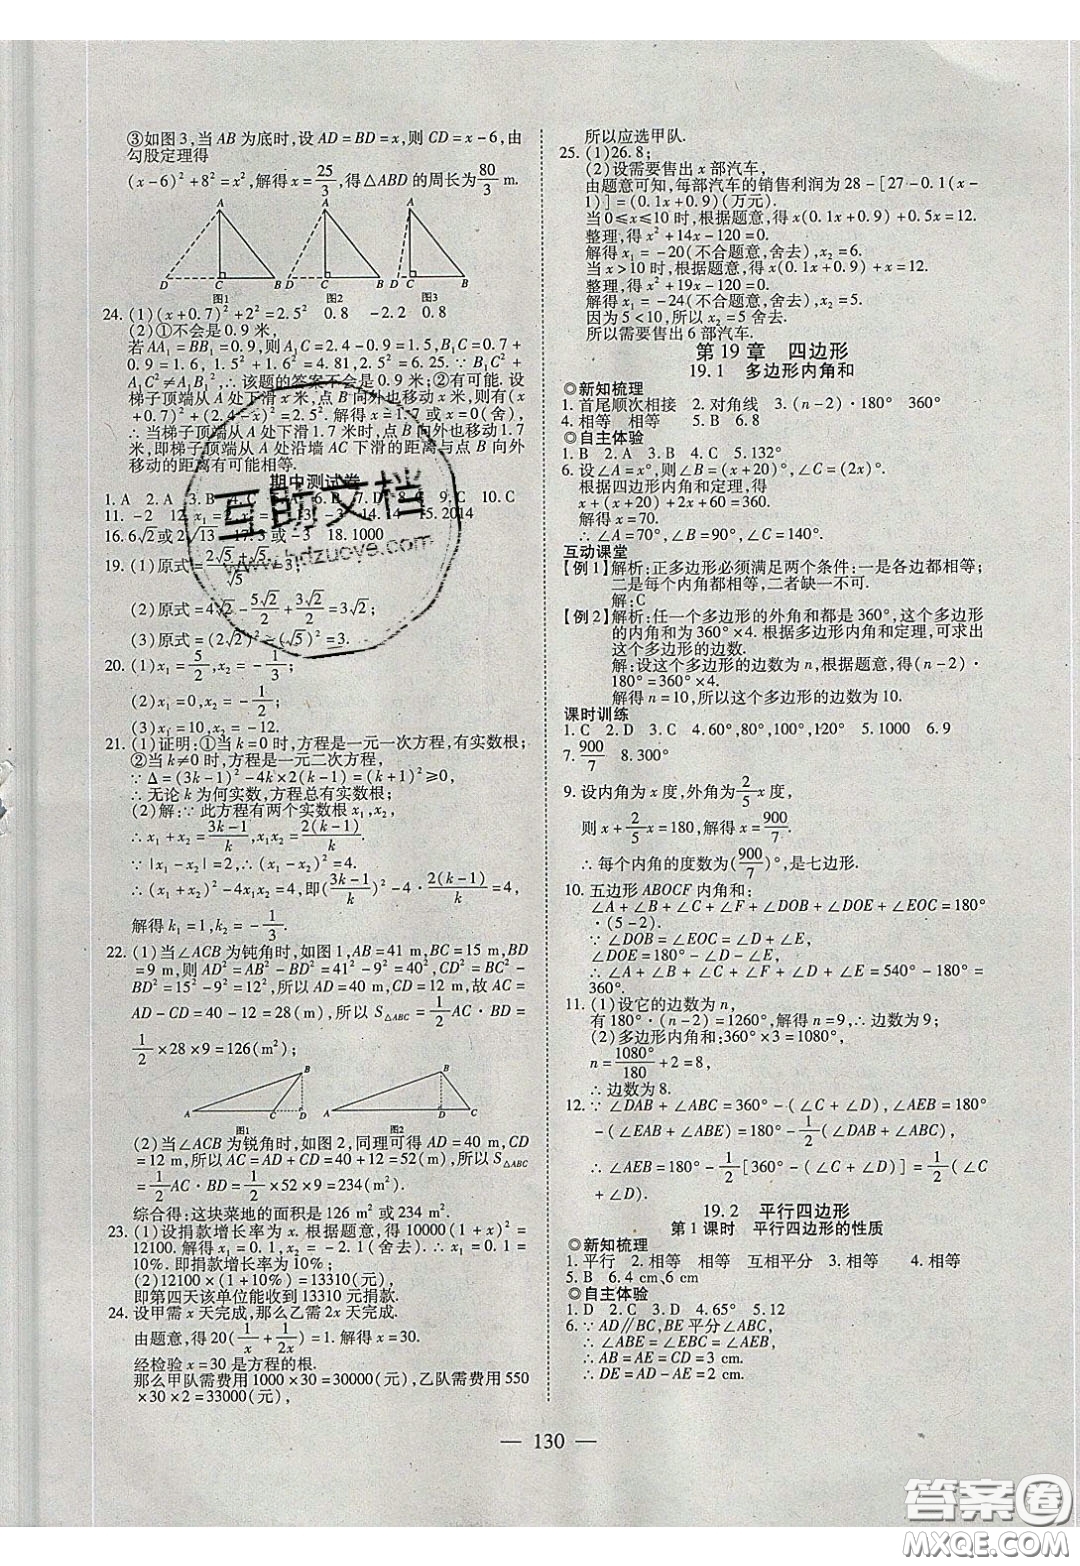 ③如图3,当AB为底时,设AD=BD=x,则CD=x-6,由
勾股定理得
(x-6)²+8²=x²,解得x=25/3,得△ABD的周长为80/3 m.
A A A
D C B D C B D C B
图1 图2 图3
24. (1)(x+0.7)²+2²=2.5² 0.8 -2.2 0.8
(2)①不会是0.9米,
若AA₁=BB₁=0.9,则A₁C=2.4-0.9=1.5,B₁C=0.7
+0.9=1.6,1.5²+1.6²=4.81,2.5²=6.25.∵B₁C²+
A₁C²≠A₁B₁²,∴该题的答案不会是0.9米;②有可能.设
梯子顶端从A处下滑x米,点B向外也移动x米,则有(x
+0.7)²+(2.4-x)²=2.5².解得x=1.7或x=0(舍).
∴当梯子顶端从A处下滑1.7米时,点B向外也移动1.7
米,即梯子顶端从A处沿墙AC下滑的距离与点B向外
移动的距离有可能相等.
期中测试卷
1. A 2. A 3. B 4. C 6. B 7. D 8. C 9. C 10. C
11. -2 12. x₁=2,x₂=5 13. -3 14. 14 15. 2014
16. 6√2或2√13 17. 3或-3 18. 1000
19. (1)原式=(2√5+√5)/√5=3;
(2)原式=4√2-5√2/2+3√2/2=3√2;
(3)原式=(2√2)²-(√5)²=3.
20. (1)x₁=5/2,x₂=-1/3;
(2)x₁=0,x₂=-1/2;
(3)x₁=10,x₂=-12.
21. (1)证明:①当k=0时,方程是一元一次方程,有实数根;
②当k≠0时,方程是一元二次方程,
∵Δ=(3k-1)²-4k×2(k-1)=(k+1)²≥0,
∴无论k为何实数,方程总有实数根;
(2)解:∵此方程有两个实数根x₁,x₂,
∴x₁+x₂=(3k-1)/k,x₁x₂=2(k-1)/k.
∵|x₁-x₂|=2,∴(x₁-x₂)²=4.
∴(x₁+x₂)²-4x₁x₂=4,即((3k-1)/k)²-4·2(k-1)/k=4,
解得k₁=1,k₂=-1/3.
22. (1)当∠ACB为钝角时,如图1,AB=41 m,BC=15 m,BD
=9 m,则AD²=AB²-BD²=41²-9²=40²,CD²=BC²-
BD²=15²-9²=12²,所以AD=40 m,CD=12 m,故AC=
AD-CD=40-12=28(m),所以S△ABC=1/2AC·BD=
1/2×28×9=126(m²);
B B
A C D A D C
图1 图2
(2)当∠ACB为锐角时,如图2,同理可得AD=40 m,CD
=12 m,所以AC=AD+CD=40+12=52(m),所以S△ABC
=1/2AC·BD=1/2×52×9=234(m²).
综合得:这块菜地的面积是126 m²或234 m².
23. (1)设捐款增长率为x.根据题意,得10000(1+x)²=
12100.解得x₁=0.1,x₂=-2.1(舍去).即x=0.1=
10%.即捐款增长率为10%;
(2)12100×(1+10%)=13310(元),
即第四天该单位能收到13310元捐款.
24. 设甲需x天完成,那么乙需2x天完成.
由题意,得20(1/x+1/2x)=1.解得x=30.
经检验x=30是方程的根.
那么甲队需费用1000×30=30000(元),乙队需费用550
×30×2=33000(元),
所以应选甲队.
25. (1)26.8;
(2)设需要售出x部汽车,
由题意可知,每部汽车的销售利润为28-[27-0.1(x-
1)]=(0.1x+0.9)(万元).
当0≤x≤10时,根据题意,得x(0.1x+0.9)+0.5x=12.
整理,得x²+14x-120=0.
解得x₁=-20(不合题意,舍去),x₂=6.
当x>10时,根据题意,得x(0.1x+0.9)+x=12.
整理,得x²+19x-120=0.
解得x₁=-24(不合题意,舍去),x₂=5.
因为5<10,所以x=5舍去.
所以需要售出6部汽车.
第19章 四边形
19.1 多边形内角和
◎新知梳理
1. 首尾顺次相接 2. 对角线 3. (n-2)·180° 360°
4. 相等 相等 5. B 6. 8
◎自主体验
1. B 2. A 3. A 4. C 5. 132°
6. 设∠A=x°,则∠B=(x+20)°,∠C=(2x)°.
根据四边形内角和定理,得
x+(x+20)+2x+60=360.
解得x=70.
∴∠A=70°,∠B=90°,∠C=140°.
互动课堂
【例1】解析:正多边形必须满足两个条件:一是各边都相等;
二是每个内角都相等,二者缺一不可.
解:C
【例2】解析:任一个多边形的外角和都是360°,这个多边形
的内角和为360°×4.根据多边形内角和定理,可求出
这个多边形的边数.
解:设这个多边形的边数为n,根据题意,得(n-2)·
180°=360°×4.
解得n=10,所以这个多边形的边数为10.
课时训练
1. C 2. D 3. C 4. 60°,80°,100°,120° 5. 1000 6. 9
7. 900/7 8. 300°
9. 设内角为x度,外角为2/5x度,
则x+2/5x=180,解得x=900/7.
∴每个内角的度数为(900/7)°,是七边形.
10. 五边形ABOCF内角和:
∠A+∠B+∠C+∠F+∠DOB+∠DOE+∠EOC=180°
·(5-2).
∵∠DOB=∠EOC=∠D+∠E,
∠DOE=180°-∠D-∠E,
∴∠A+∠B+∠C+∠F+∠D+∠E=540°-180°=
360°.
11. (1)设它的边数为n,
有180°·(n-2)=1260°,解得n=9,∴边数为9;
(2)多边形内角和:360°×3=1080°,
n=1080°/180+2=8,
∴边数为8.
12. ∵∠DAB+∠ABC=360°-(∠C+∠D),∠AEB=180°
-(∠EAB+∠ABE)=180°-1/2(∠DAB+∠ABC),
∴∠AEB=180°-1/2[360°-(∠C+∠D)]=1/2(∠C
+∠D).
19.2 平行四边形
第1课时 平行四边形的性质
◎新知梳理
1. 平行 2. 相等 相等 互相平分 3. 相等 4. 相等
5. B 6. 4 cm、6 cm
◎自主体验
1. D 2. C 3. D 4. 65° 5. 12
6. ∵AD∥BC,BE平分∠ABC,
∴∠ABE=∠EBC=∠AEB,
∴AB=AE=CD=3 cm.
∴DE=AD-AE=2 cm.
— 130 —
互助文档
www.hdzuoye.com
答案圈
MXQE.COM